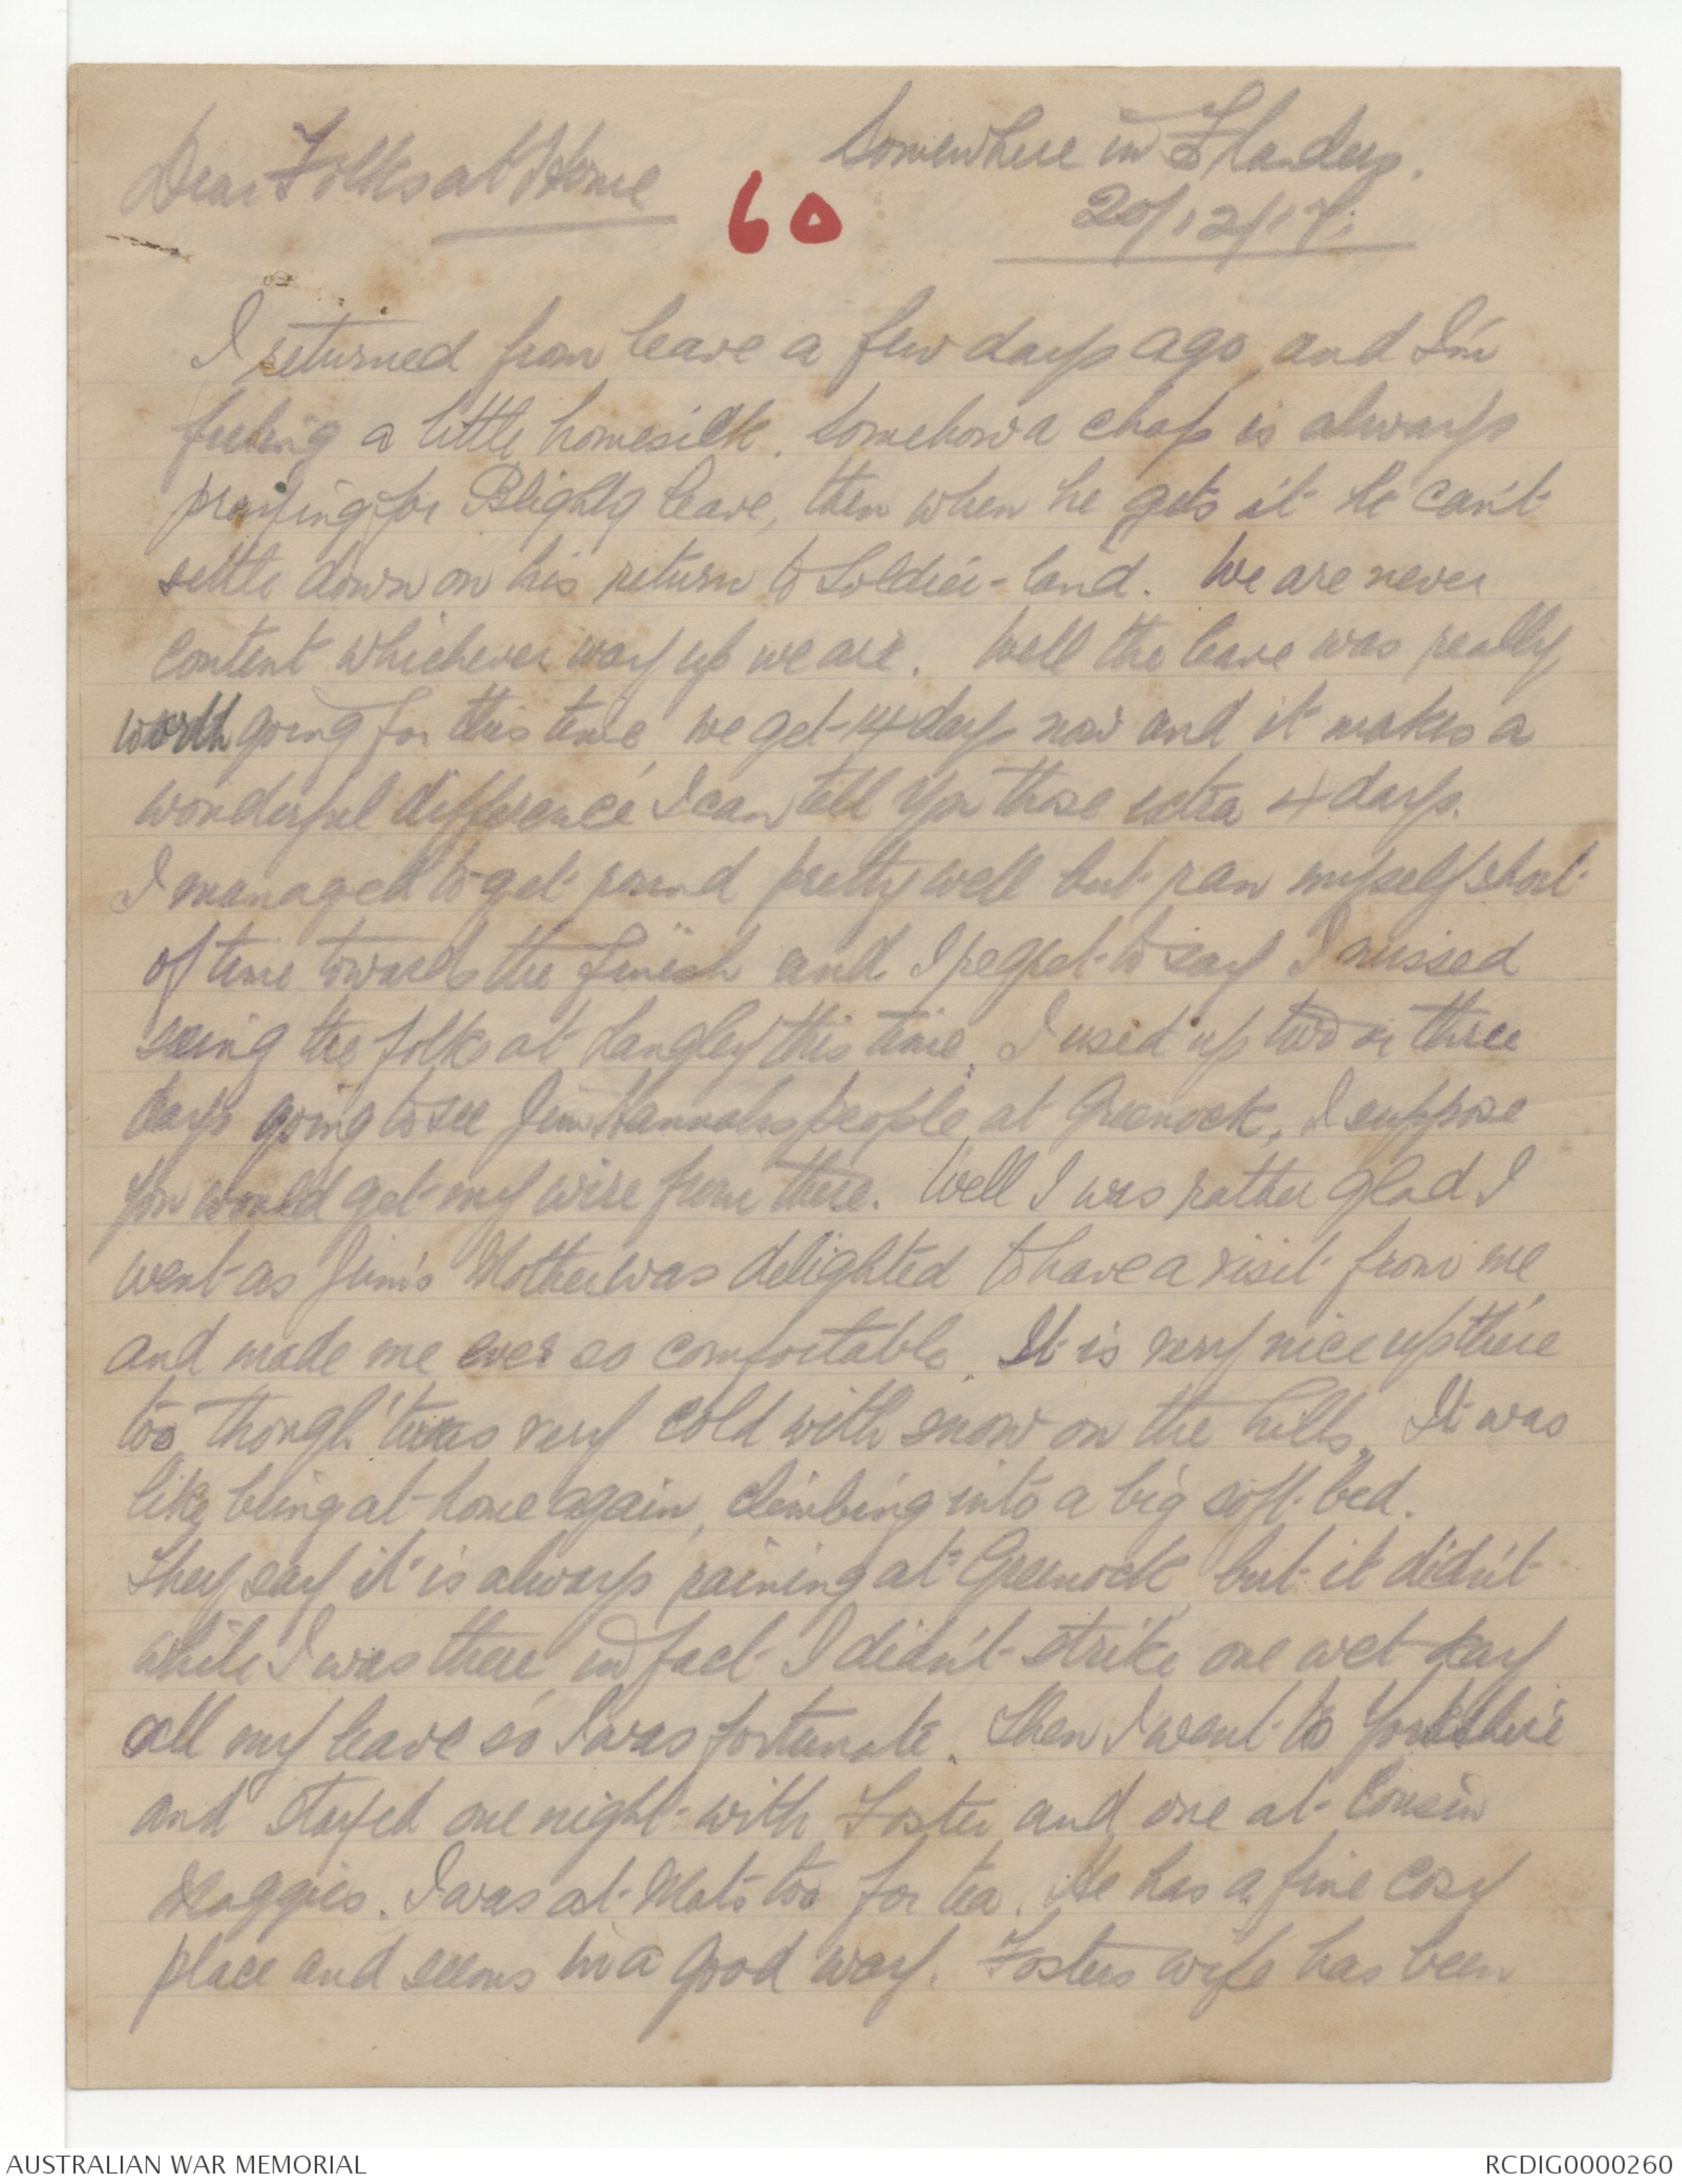 Somewhere in Flanders.
Dear Folks at Home
60
20/12/17.
I returned from leave a few days ago, and I'm
feeling a little homesick. Somehow a chap is always
praying for Blighty leave, then when he gets it he can't
settle down on his return to Soldier-land. We are never
content whichever way up we are. Well the leave was really
worth going for this time, we get 14 days now and it makes a
wonderful difference I can tell you those extra 4 days.
I managed to get round pretty well but ran myself short
of time towards the finish and I regret to say I missed
seeing the folks at Langley this time. I used up two or three
days going to see Jim Hannahs people at Greenock, I suppose
you would get my wire from there. Well I was rather glad I
went as Jim's Mother was delighted to have a visit from me,
and made me ever so comfortable. It is very nice up there
too, though 'twas very cold with snow on the hills. It was
like being at home again, climbing into a big soft bed.
They say it is always raining at Greenock, but it didn't
while I was there, in fact I didn't strike one wet day
all my leave so I was fortunate. Then I went to Yorkshire
and stayed one night with Foster and one at Cousin
Maggies. I was at Mats too for tea. He has a fine cosy
place and seems in a good way. Fosters wife has been
AUSTRALIAN WAR MEMORIAL
RCDIG0000260